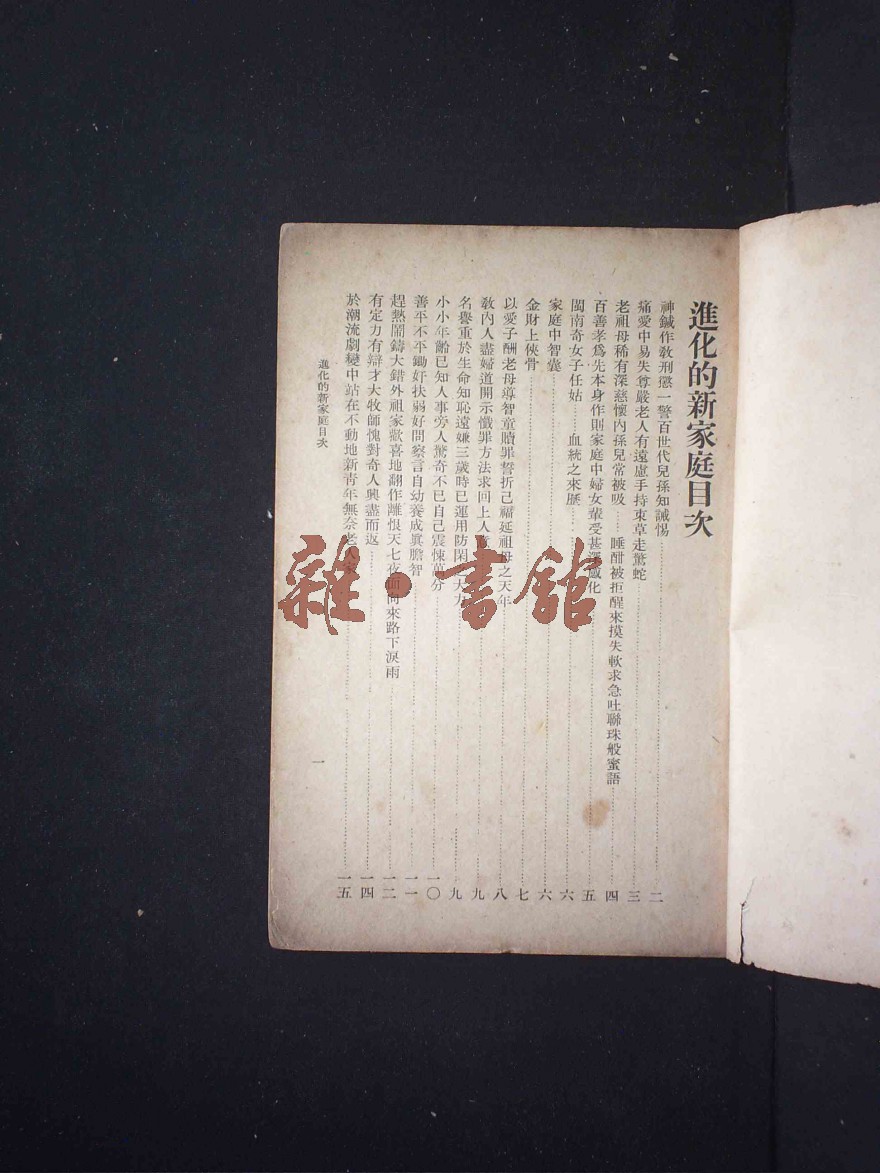 進化的新家庭目次
神鍼作教刑懲一警百世代兒孫知誡惕……二
痛愛中易失尊嚴老人有遠慮手持束草走驚蛇……三
老祖母稀有深慈懷內孫兒常被吸……睡酣被拒醒來摸失軟求急吐聯珠般蜜語……四
百善孝爲先本身作則家庭中婦女輩受甚深感化……五
閩南奇女子任姑……血統之來歷……六
家庭中智囊……六
金財上俠骨……七
以愛子酬老母導智童贖罪誓折己福延祖母之天年……八
敎內人盡婦道開示懺罪方法求回上人意……九
名譽重於生命知恥遠嫌三歲時已運用防閑大力……九
小小年齡已知人事旁人驚奇不已自己震悚萬分……一〇
善平不平鋤奸扶弱好問察言自幼養成眞膽智……一一
趕熱鬧鑄大錯外祖家歡喜地翻作離恨天七夜面向來路下淚雨……一二
有定力有辯才大牧師愧對奇人興盡而返……一四
於潮流劇變中站在不動地新靑年無奈老人……一五
進化的新家庭目次
一
雜·書館